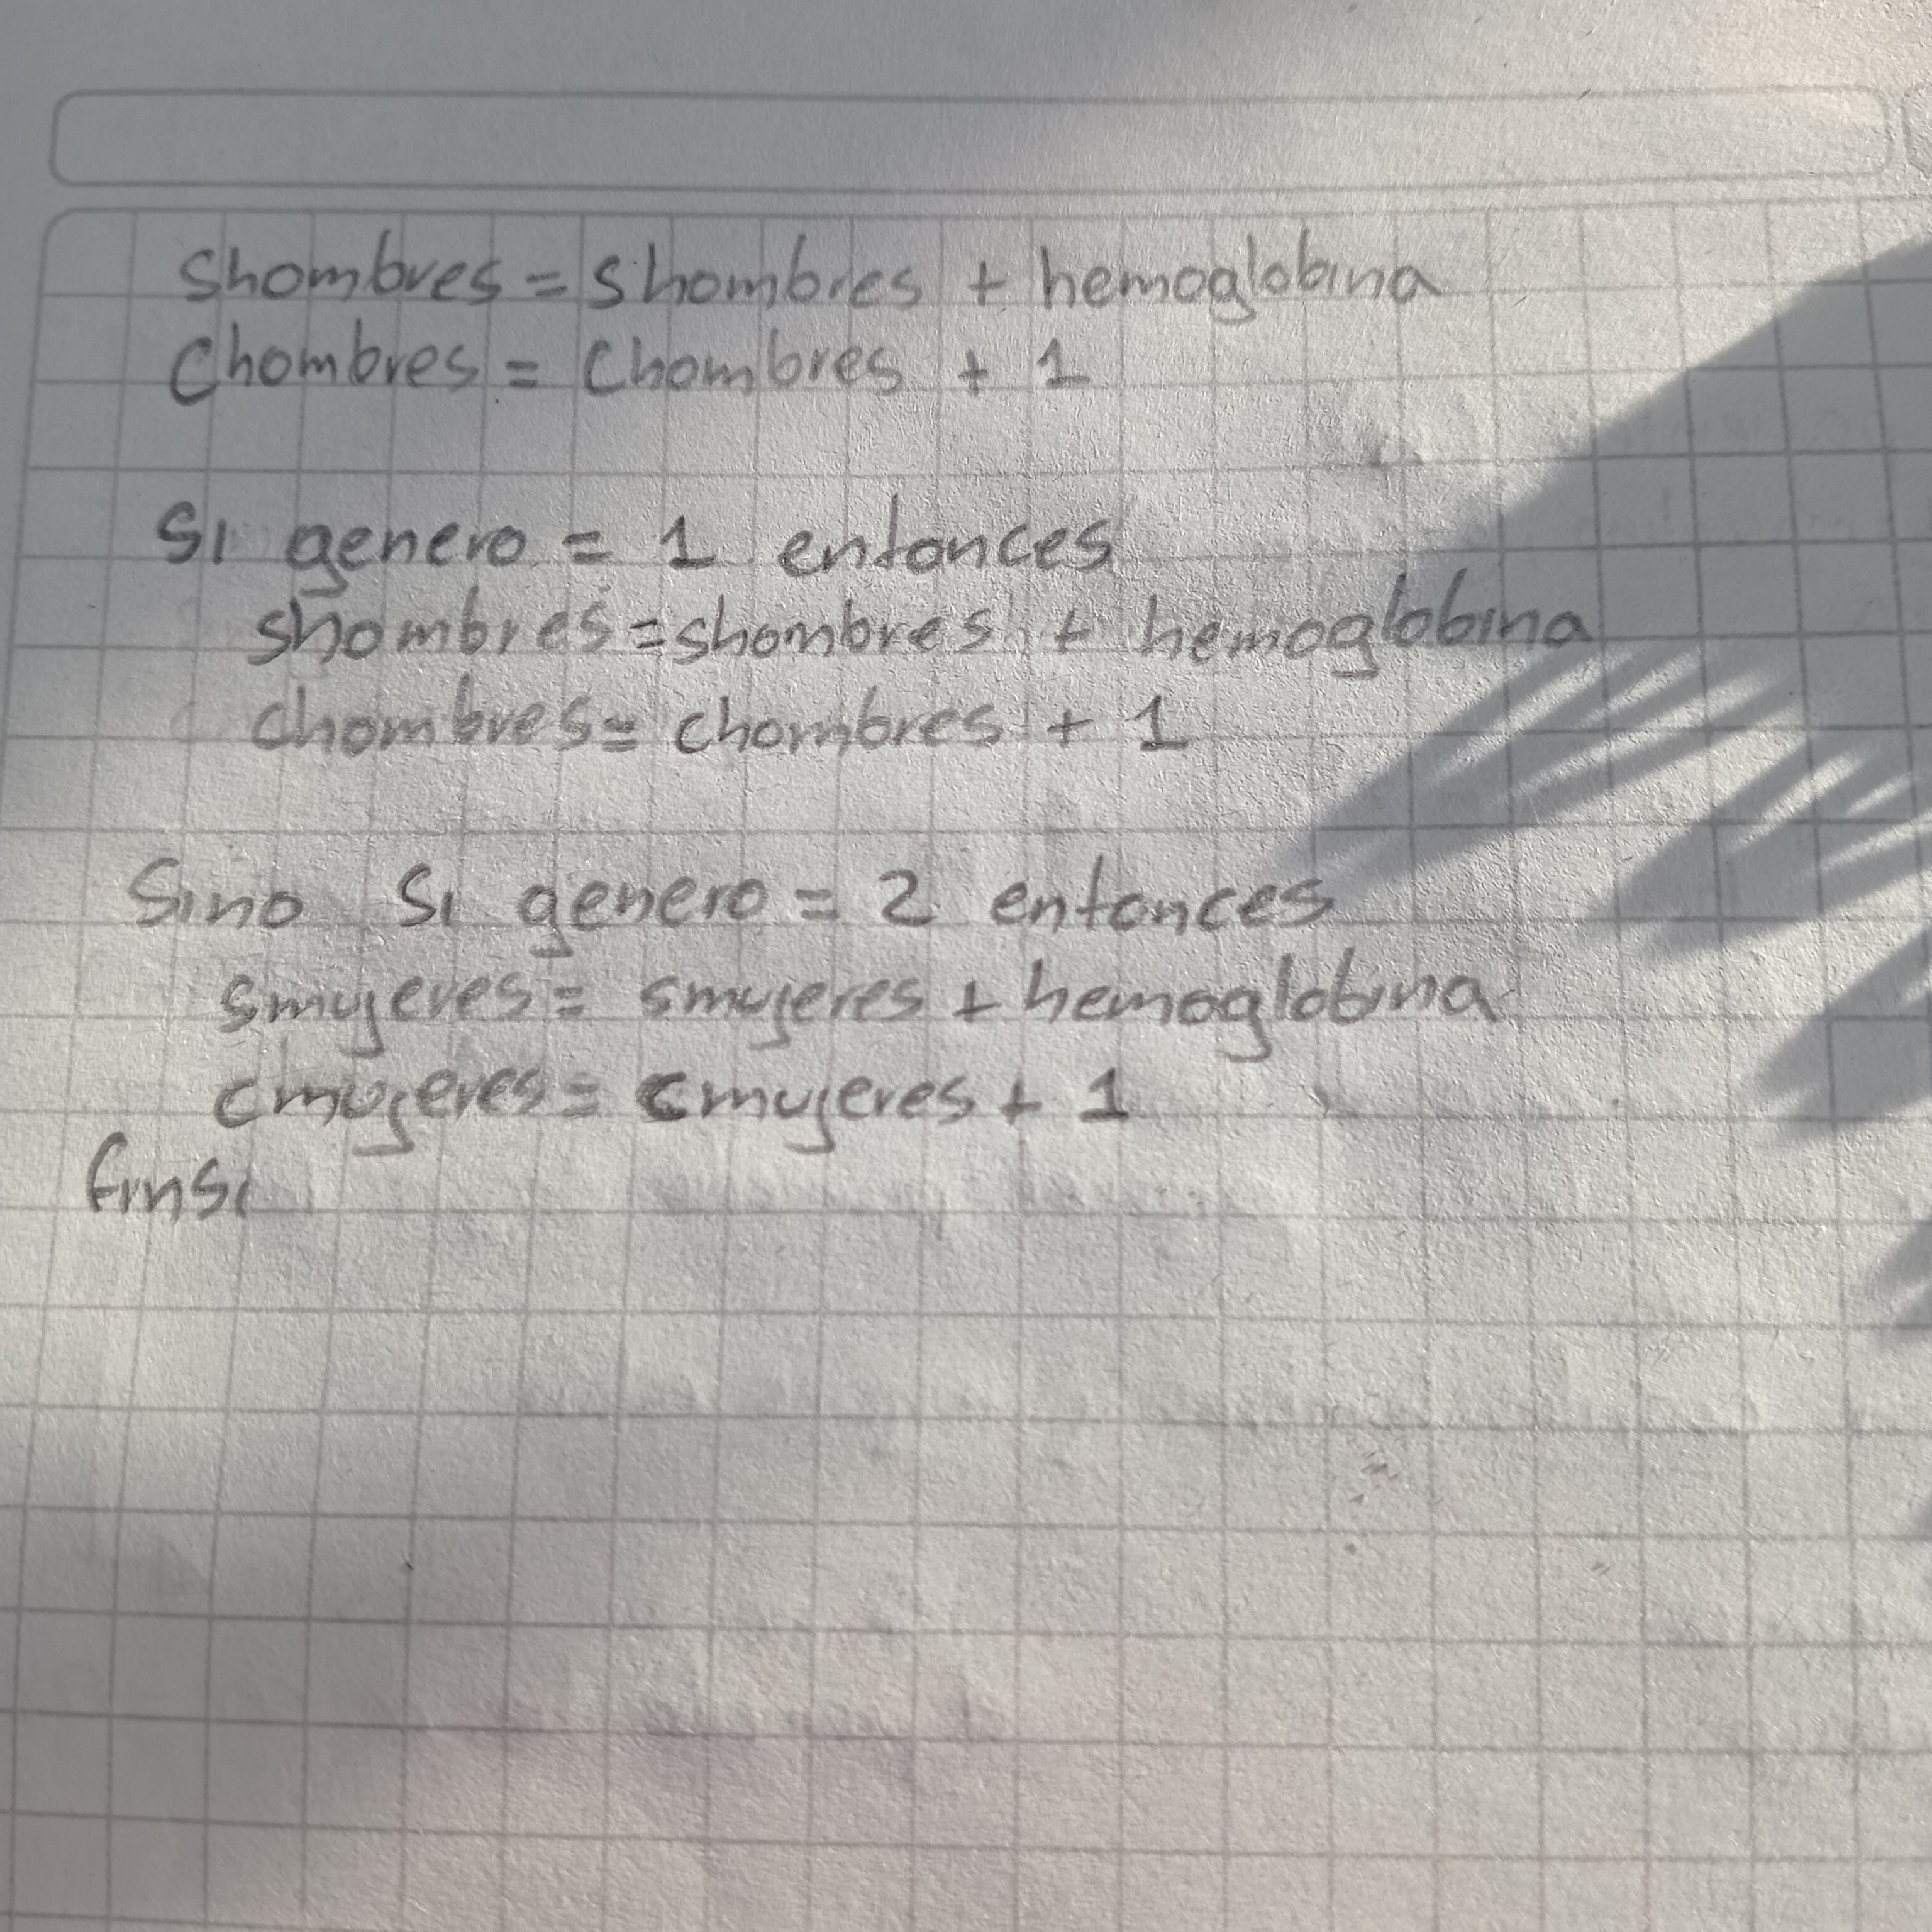 Shombres = Shombres + hemoglobina
Chombres = Chombres + 1
Si genero = 1 entonces
shombres = shombres + hemoglobina
chombres = chombres + 1
Sino Si genero = 2 entonces
smujeres = smujeres + hemoglobina
cmujeres = cmujeres + 1
finsi